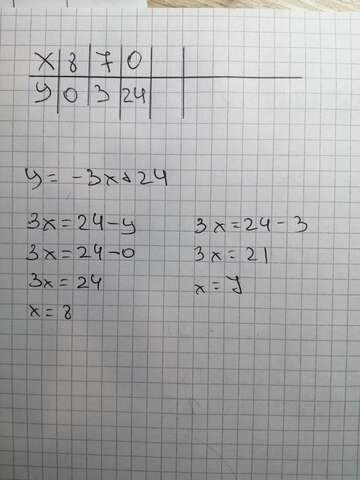 x 8 7 0
y 0 3 24
y = -3x+24
3x = 24-y
3x = 24-0
3x = 24
x = 8
3x = 24-3
3x = 21
x = 7